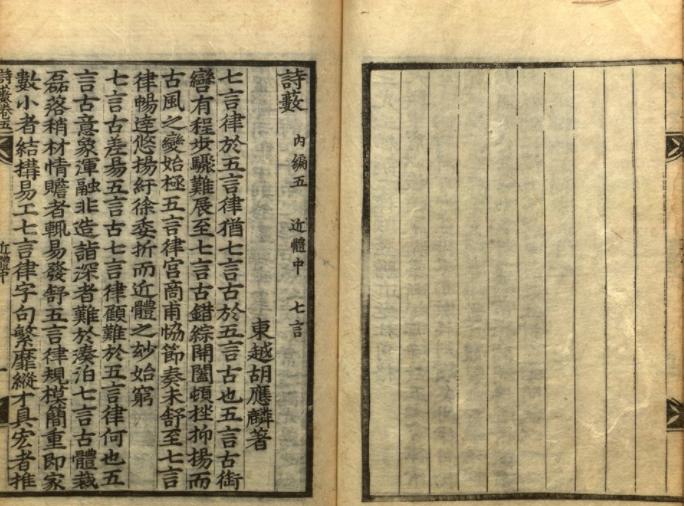 詩藪 內編五 近體中 七言
東越胡應麟著
七言律於五言律猶七言古於五言古也五言古銜
轡有程步驟難展至七言古錯綜開闔頓挫抑揚而
古風之變始極五言律宮商甫恊節奏未舒至七言
律暢達悠揚紆徐委折而近體之玅始窮
七言古差易五言古七言律顧難於五言律何也五
言古意象渾融非造詣深者難於湊泊七言古體裁
磊落稍材情贍者輒易發舒五言律規模簡重即家
數小者結搆易工七言律字句繁靡縱才具宏者推
詩藪卷五 近體中 一